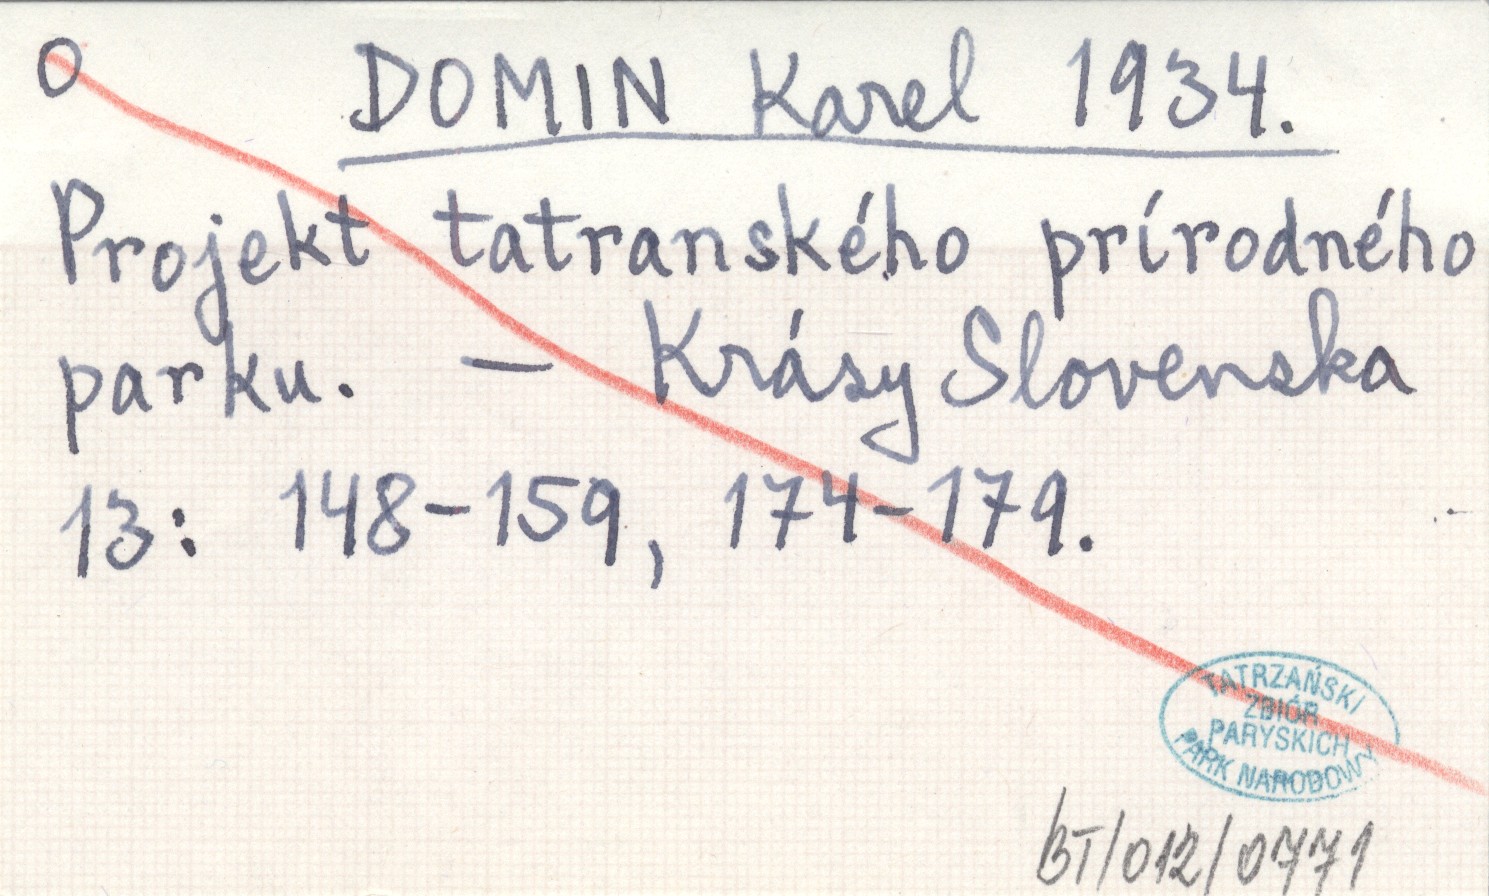 O DOMIN Karel 1934.
Projekt tatranského prírodného
parku. — Krásy Slovenska
13: 148-159, 174-179.
TATRZAŃSKI
ZBIÓR
PARYSKICH
PARK NARODOWY
BT/012/0771